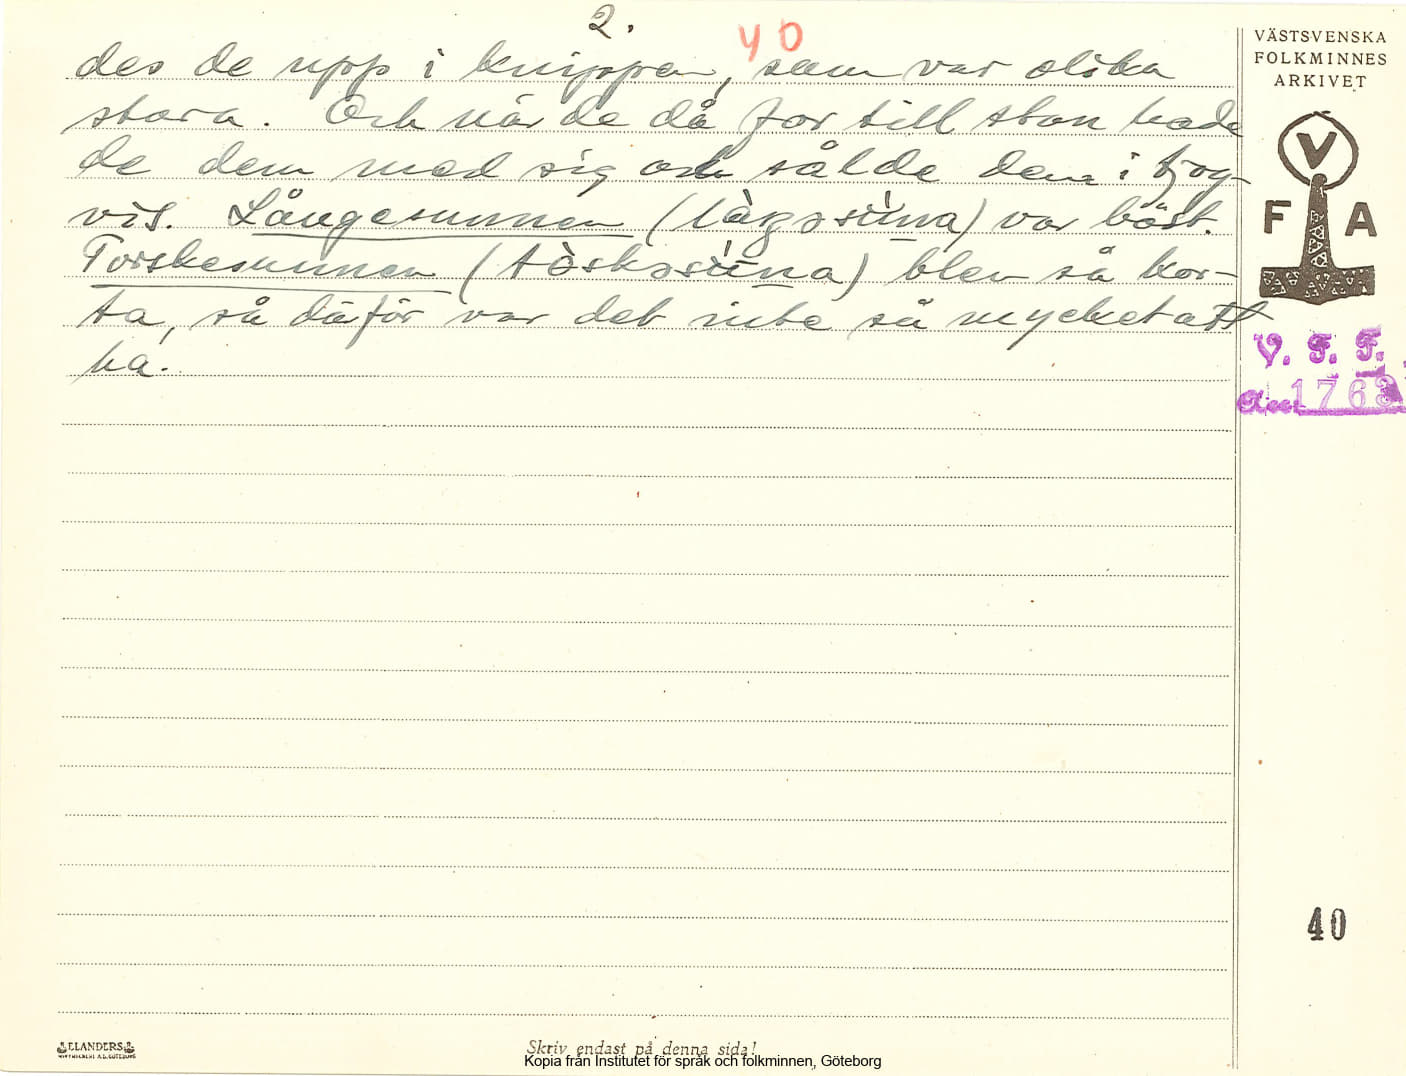 2.
40
des de upp i knippen, som var olika
stora. Och när de då for till stan hade
de dem med sig och sålde dem i tjog-
vis. Långesunnen (làŋəsùna) var bäst.
Torskesunnen (tòskəsùna) blev så kor-
ta, så därför var det inte så mycket att
ha.
VÄSTSVENSKA
FOLKMINNES
ARKIVET
V
F A
V. F. F.
1763
40
ELANDERS
Skriv endast på denna sida!
Kopia från Institutet för språk och folkminnen, Göteborg